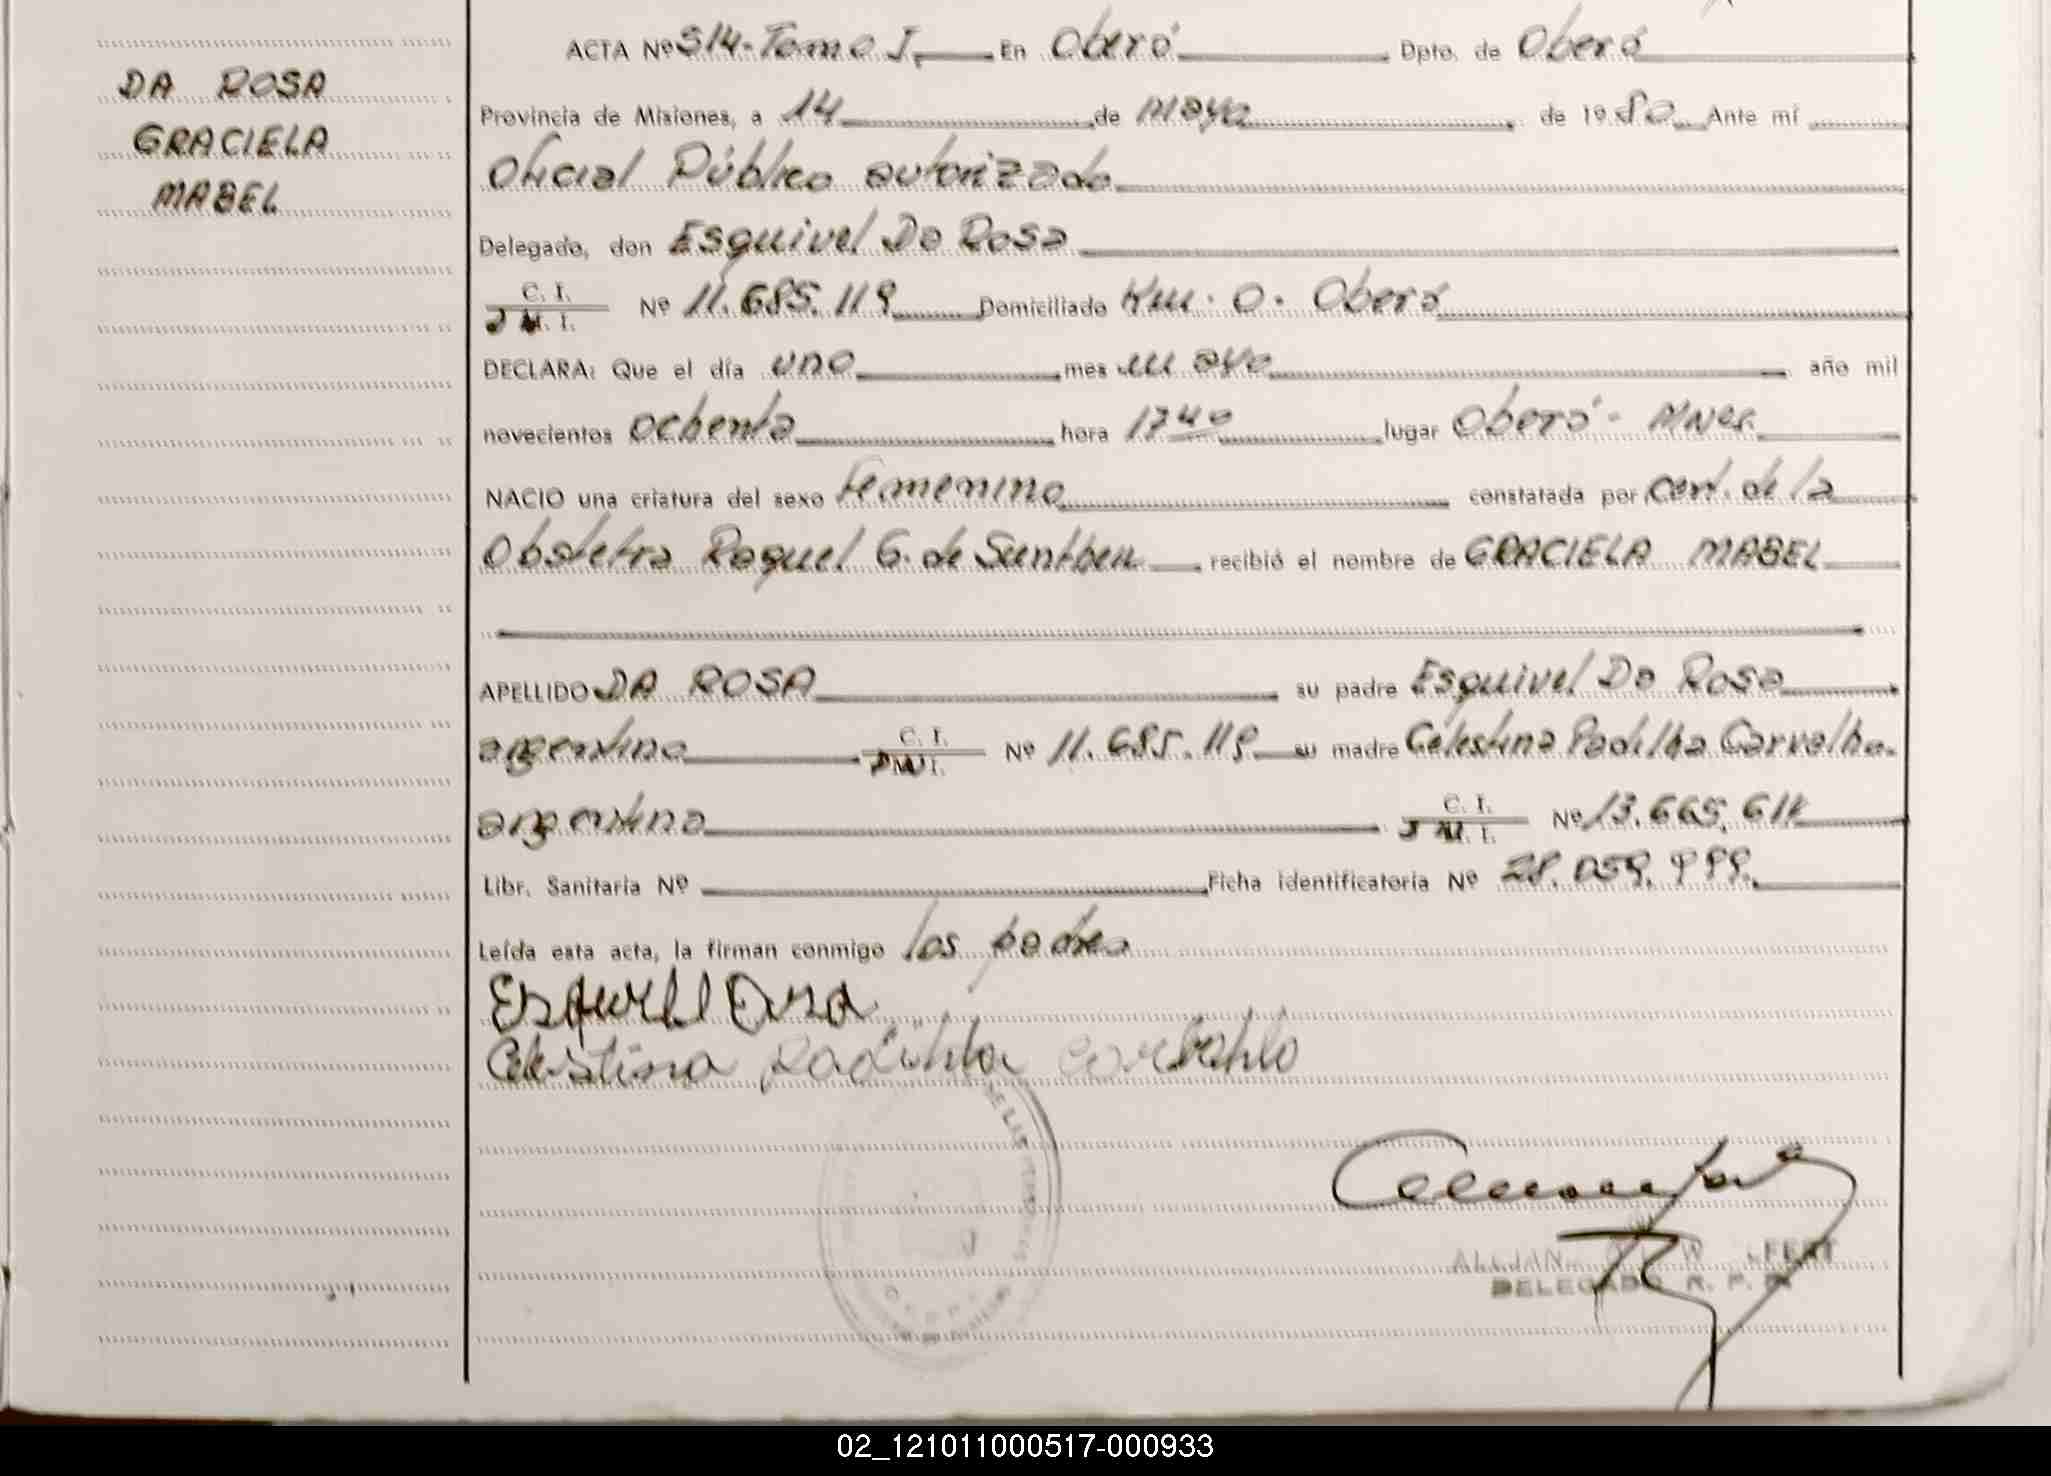 DA ROSA
GRACIELA
MABEL
ACTA Nº 514-Tomo I, En Oberá Dpto. de Oberá
Provincia de Misiones, a 14 de mayo de 1980 Ante mí
Oficial Público autorizado
Delegado, don Esquivel Da Rosa
C. I.
M. I. Nº 11.685.119 Domiciliado Km. 0. Oberá
DECLARA: Que el día uno mes mayo año mil
novecientos ochenta hora 17 40 lugar Oberá - Mnes.
NACIO una criatura del sexo Femenino constatada por cert. de la
Obstetra Raquel G. de recibió el nombre de GRACIELA MABEL
APELLIDO DA ROSA su padre Esquivel Da Rosa
argentino C. I. Nº 11.685.119 su madre Celestina Padilha Carvalho.
argentina C. I.
M. I. Nº 13.665.611
Libr. Sanitaria Nº Ficha identificatoria Nº 28.059.999.
Leída esta acta, la firman conmigo los padres
Celestina Padilha
DE LAS PERSONAS
DELEGADO R. P. P.
02_121011000517-000933